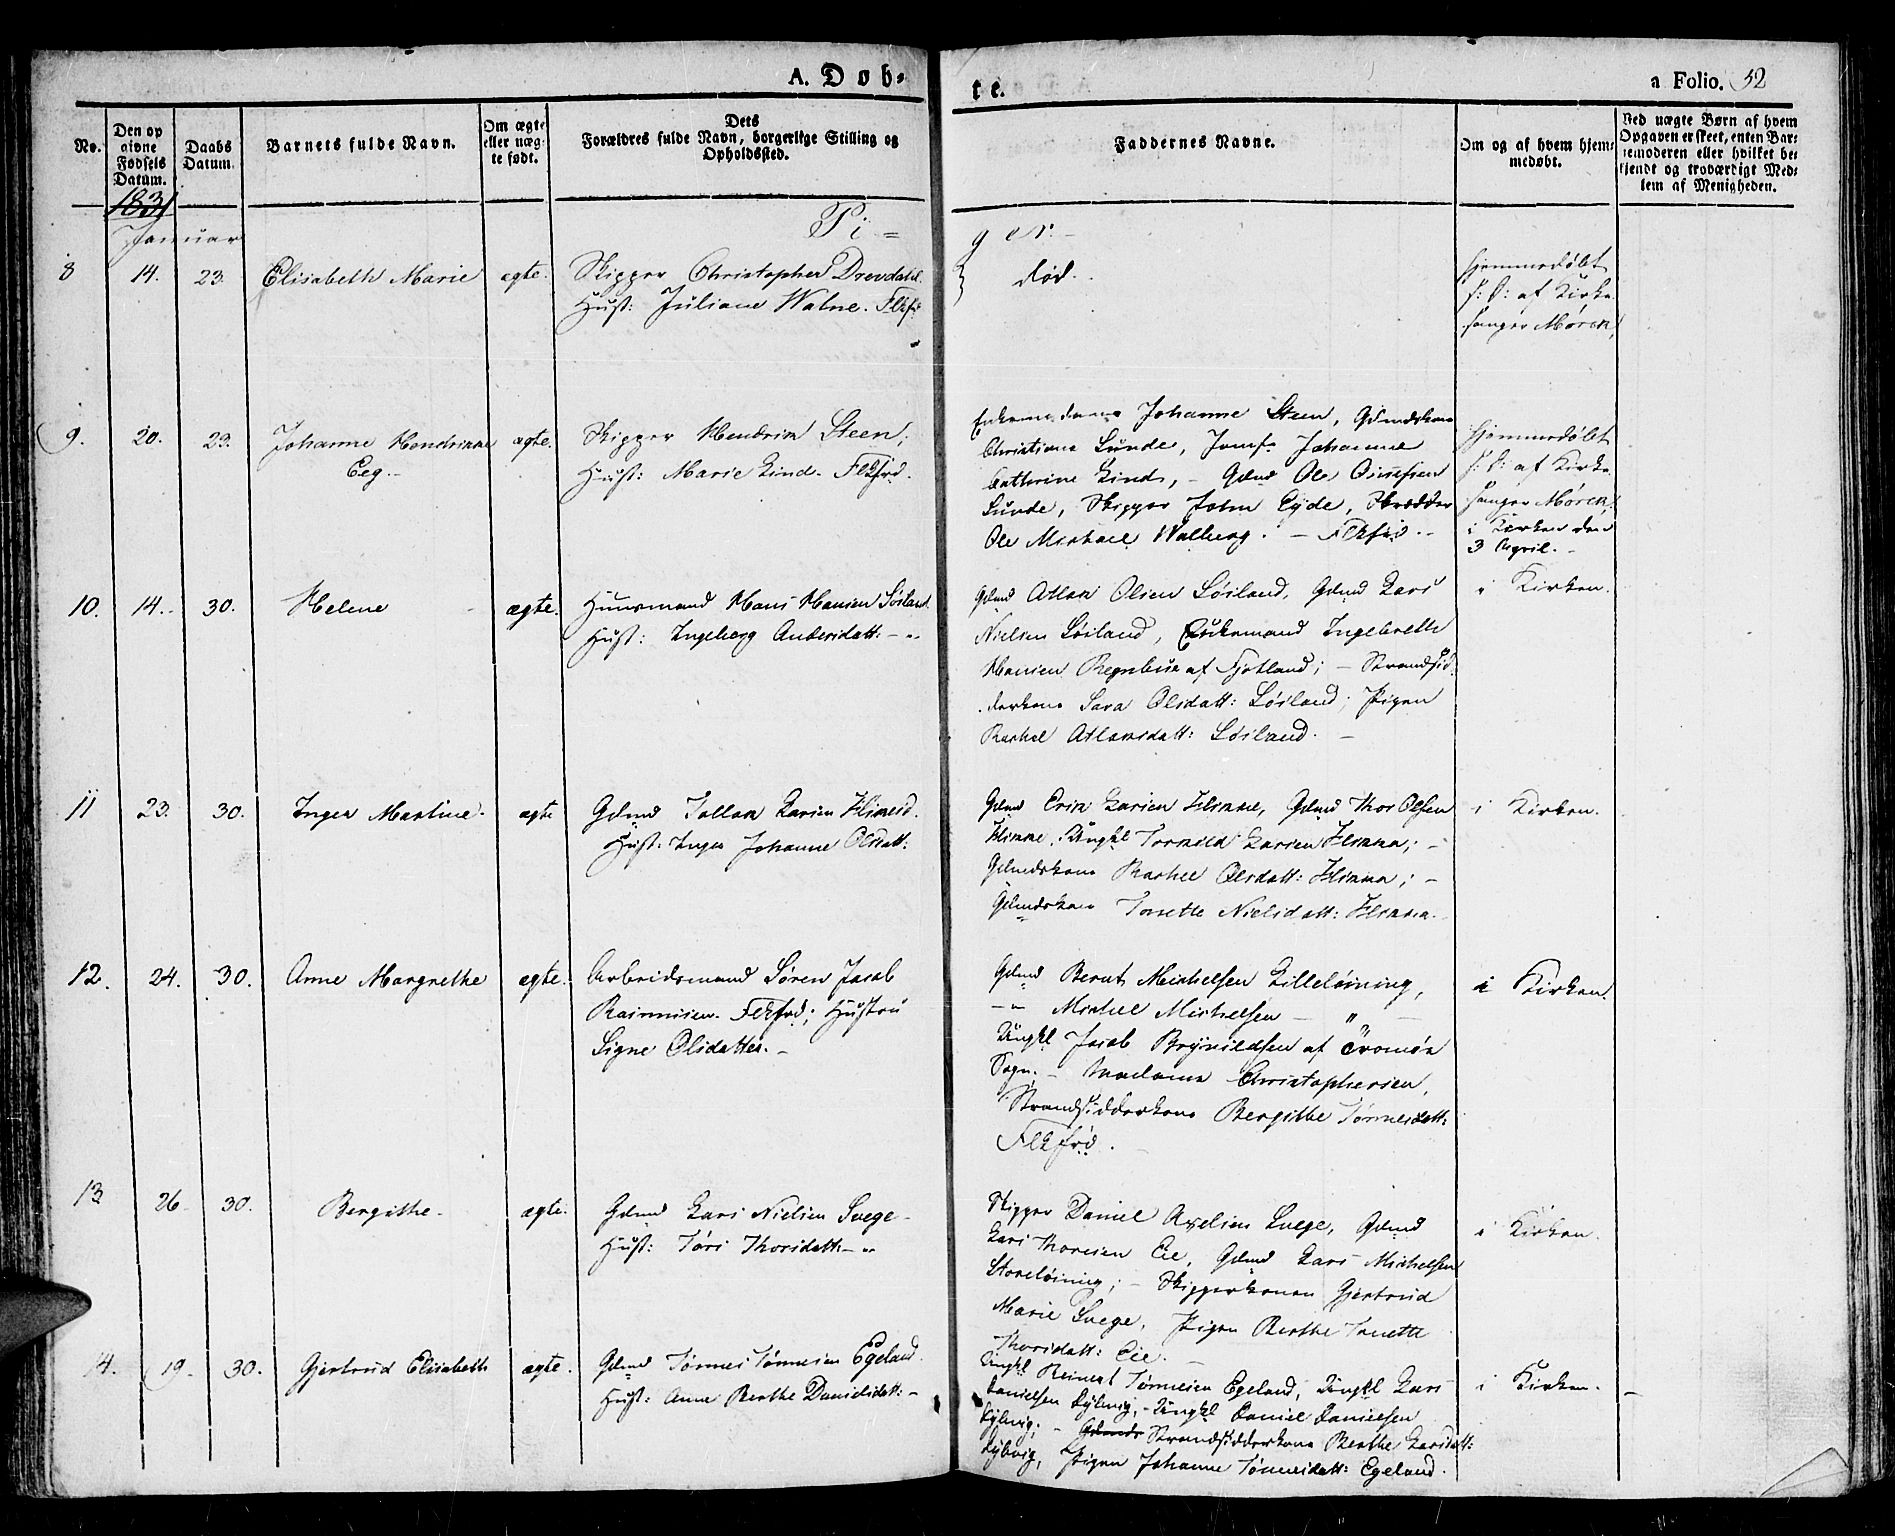 A. Døb-
te.
a Folio. 52
No.
Den op
givne
Fødsels
Datum.
Daabs
Datum.
Barnets fulde Navn.
Om ægte
eller uæg-
te født.
Dets
Forældres fulde Navn, borgerlige Stilling og
Opholdssted.
Faddernes Navne.
Om og af hvem hjem-
medøbt.
Ved uægte Børn af hvem
Opgaven er skeet, enten Bar-
nemoderen eller hvilket be-
kjendt og troværdigt Med-
lem af Menigheden.
1831
Januar
Pi=
ger.
8 14. 23. Elisabeth Marie ægte. Skipper Christopher Drevdahl
Hust: Juliane Watne. Flkf:
død.
hjemmedøbt
af Kirke
sanger Mørch
9. 20. 23. Johanne Hendrikke ægte.
Eeg.
Skipper Hendrik Steen,
Hust: Marie Lind. Flkfrd.
Johanne Steen, Gdmdskone
Christiane Lunde, Jomf: Johanne
Cathrine Lind, - Gdmd Ole
Lunde, Skipper John Eyde, Skrædder
Ole Michael Walberg. - Flkfrd.
hjemmedøbt
af Kirke
sanger Mørch,
i Kirken den
3 April.
10. 14. 30. Helene ægte. Huusmand Hans Hansen Søiland
Hust: Ingeborg Andersdatt:
Gdmd Atlak Olsen Søiland, Gdmd Lars
Nielsen Søiland, Enkemand Ingebreth
Hansen af Fjotland; - Strandsid-
derkone Sara Olsdatt: Søiland; Pigen
Rachel Atlaksdatt: Søiland.
i Kirken.
11 23. 30. Inger Martine. ægte Gdmd Tallak Larsen
Hust: Inger Johanne Olsdatt:
Gdmd Erik Larsen Gdmd Thor Olsen
Ungkl Larsen
Gdmdskone Rachel Olsdatt:
Gdmdskone Tonette Nielsdatt:
i Kirken.
12. 24. 30. Anne Margrethe ægte. Arbeidsmand Søren Jacob
Flkfrd; Hustru
Signe Olsdatter.
Gdmd Bernt Michelsen Lilleløining,
Michel Michelsen - " -
Ungkl Jacob Brynildsen af Tromøe
Sogn. - Madame Christophersen,
Strandsidderkone Bergithe Tønnesdatt:
Flkfrd.
i Kirken.
13 26. 30. Bergithe. ægte. Gdmd Lars Nielsen Svege
Hust: Tori Thorsdatt:
Skipper Daniel Axelsen Svege, Gdmd
Lars Thorsen Eie, Gdmd Lars Michelsen
Storeløining; - Skipperkonen Gjertrud
Marie Svege, Pigen Berthe Tonette
Thorsdatt: Eie.
i Kirken.
14. 19. 30. Gjertrud Elisabeth ægte. Gdmd Tønnes Tønnesen Egeland.
Hust: Anne Berthe Danielsdatt:
Ungkl Reinert Tønnesen Egeland, Ungkl Lars
Danielsen Ungkl Daniel Danielsen
Strandsidderkone Berthe Larsdatt:
Pigen Johanne Tønnesdatt: Egeland.
i Kirken.